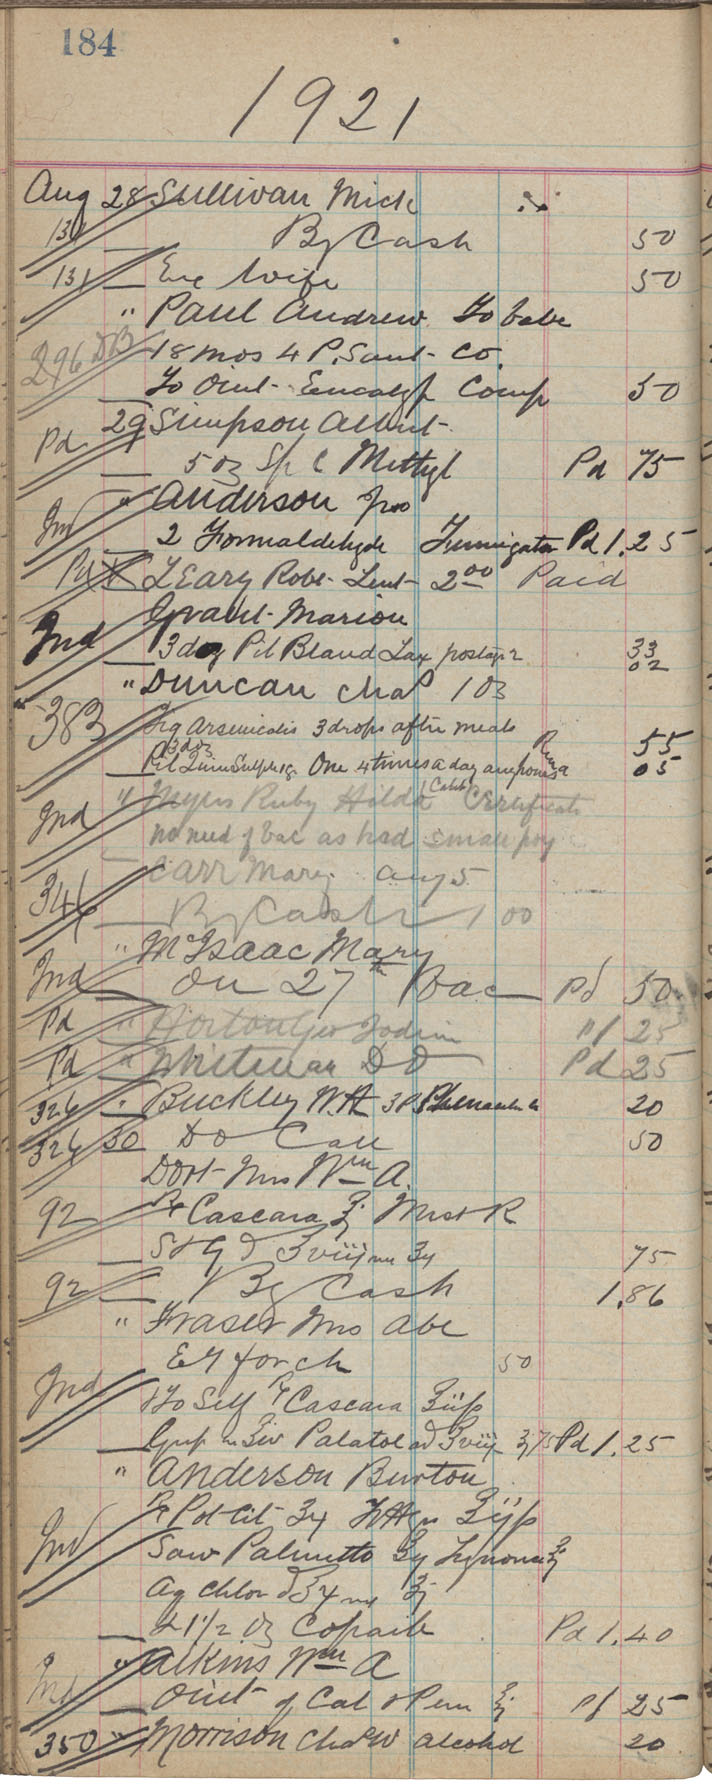 184
1921
Aug 28 Sullivan Mick
131 By Cash 50
131 Eve Wife 50
" Paul Andrew To babe
296 DB 18 mos 4 P. Sant- Co
To Oint- Eucalypt Comp 50
29 Simpson Albert-
Pd 5 oz Sp C Methyl Pd 75
" Anderson Jno
Ind 2 Formaldehyde Fumigator Pd 1.25
Pd Leary Robt- Lent- 2 00 Paid
Grant- Marion
Ind 3 doz Pil Blaud Lax postage 2 33
02
" Duncan Chas 1 oz
383 Liq Arsenicalis 3 drops after meals 55
3 doz
Pil Quin Sulph 1 gr One 4 times a day 05
Ind " Myers Ruby Hilda Certificate
no need of vac as had small pox
Carr Mary Aug 5
346 By Cash 1 00
" McIsaac Mary
Ind On 27th Vac Pd 50
Pd " Horton Geo Iodine Pd 25
Pd " Whitman DO Pd 25
326 " Buckley W.H. 3 20
326 30 DO Call 50
Dort- Mrs Wm A.
92 Rx Cascara ʒj Mist R
75
92 By Cash 1.86
" Fraser Mrs Abe
Ex for ch 50
Ind To Self Rx Cascara
Palatol ad Pd 1.25
" Anderson Burton
Rx Pot Cit
Ind Saw Palmetto
Aq Chlor
& 1 1/2 oz Copaib Pd 1.40
" Atkins Wm A
Ind Oint- of Cal & Pd 25
350 " Morrison Chas W Alcohol 20